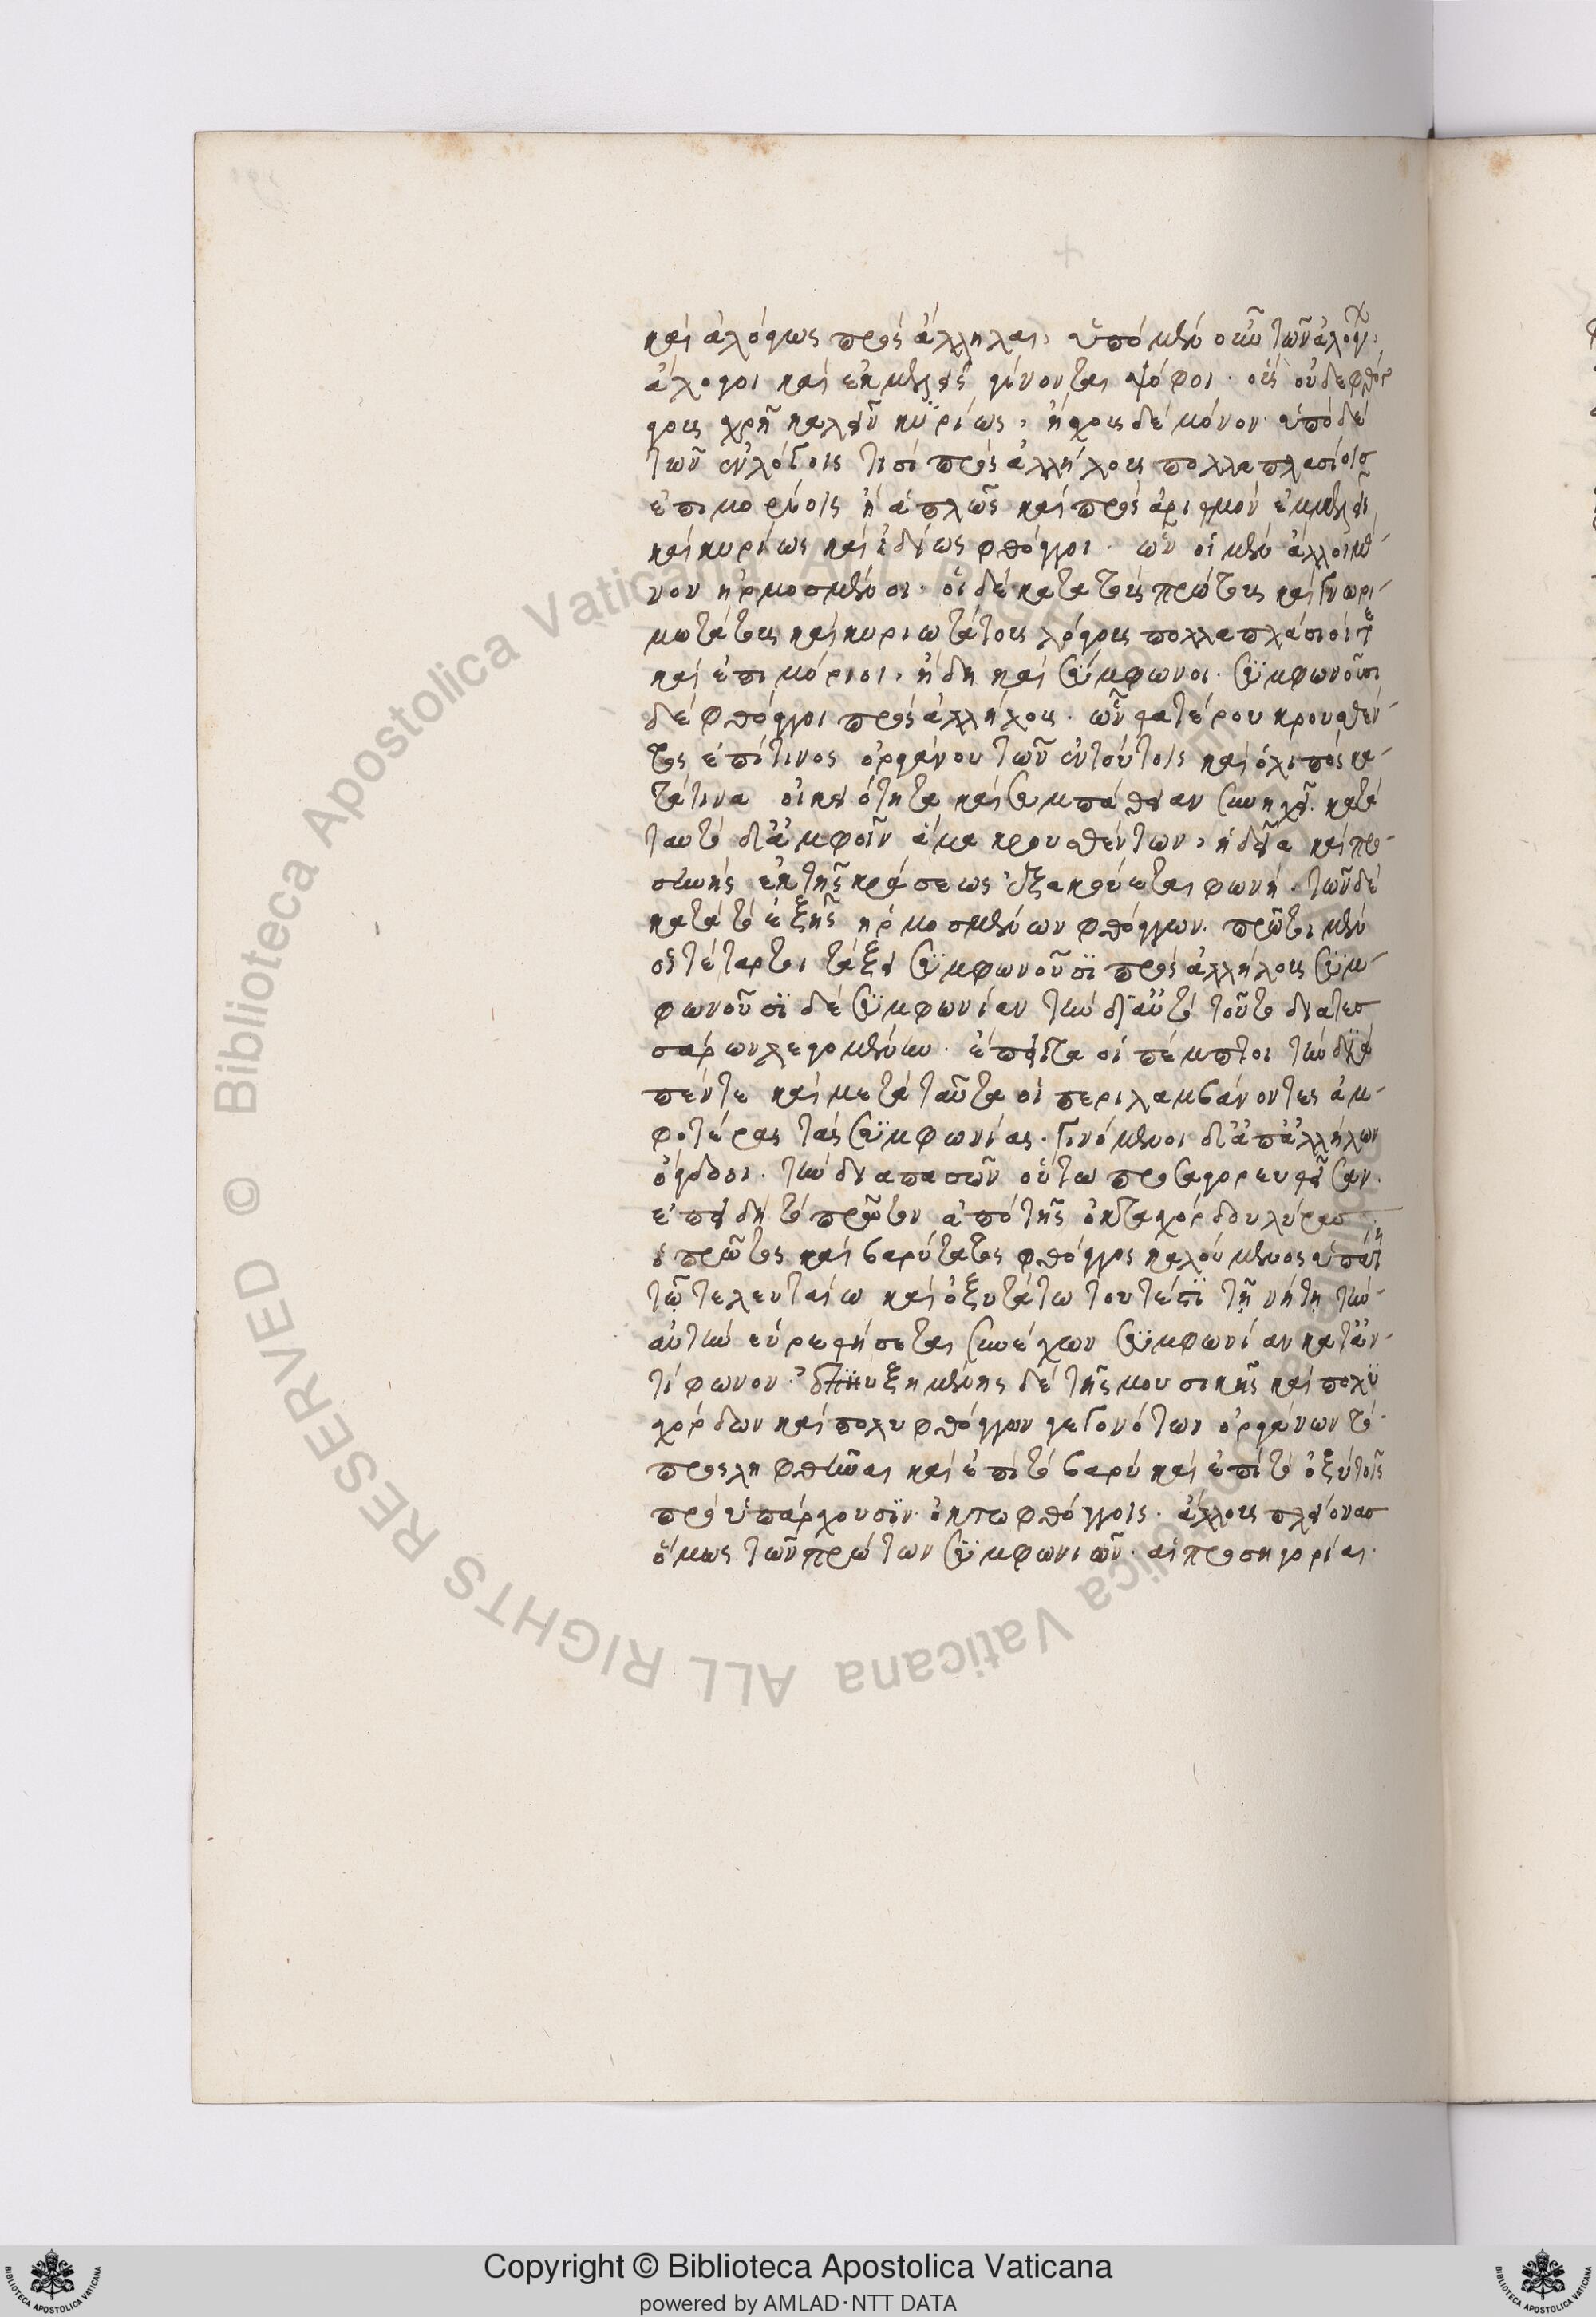 καὶ ἀλόγως πρὸς ἄλληλα, ὑπὸ μὲν οὖν τῶν ἀλόγων
ἄλογοι καὶ ἐκμελεῖς γίνονται ψόφοι· οὓς οὐδὲ φθόγ
γους χρὴ καλεῖν κυρίως, ἤχους δὲ μόνον· ὑπὸ δὲ
τῶν ἐν λόγοις τισὶ πρὸς ἀλλήλους πολλαπλασίοις
ἐπιμορίοις ἢ ἁπλῶς καὶ πρὸς ἀριθμὸν ἐμμελεῖς
καὶ κυρίως καὶ ἰδίως φθόγγοι· ὧν οἱ μὲν ἄλλοι μό
νον ἡρμοσμένοι· οἱ δὲ κατὰ τοὺς πρώτους καὶ γνωρι-
μωτάτους καὶ κυριωτάτους λόγους πολλαπλάσιοί τε
καὶ ἐπιμόριοι, ἤδη καὶ σύμφωνοι· συμφωνοῦσι
δὲ φθόγγοι πρὸς ἀλλήλους· ὧν θατέρου κρουσθέν-
τος ἐπί τινος ὀργάνου τῶν ἐντούτοις καὶ ὁ λιπὸς κα-
τά τινα οἰκειότητα καὶ συμπάθειαν συνηχεῖ· κατὰ
ταυτὸ δι' ἀμφοῖν ἅμα κρουσθέντων, ἡδεῖα καὶ προ-
σηνὴς ἐκ τῆς κράσεως ἐξακούεται φωνή· τῶν δὲ
κατὰ τὸ ἑξῆς ἡρμοσμένων φθόγγων· πρῶτοι μὲν
οἱ τέταρτοι τάξει συμφωνοῦσϊ πρὸς ἀλλήλους συμ-
φωνοῦσϊ δὲ συμφωνίαν τὴν δι' αὐτὸ τοῦτο διατεσ
σάρων λεγομένην· ἔπειτα οἱ πέμπτοι τὴν διὰ
πέντε καὶ μετὰ ταῦτα οἱ περιλαμβάνοντες ἀμ-
φοτέρας τὰς συμφωνίας· γινόμενοι δι' ἀπ' ἀλλήλων
ὄγδοοι· τὴν διαπασῶν οὕτω προσαγορευθεῖσαν·
ἐπειδὴ τὸ πρῶτον ἀπὸ τῆς ὀκταχόρδου λύρας
ὁ πρῶτος καὶ βαρύτατος φθόγγος καλούμενος ὑπάτη
τῷ τελευταίω καὶ ὀξυτάτω τουτέστι τῇ νήτῃ τὴν
αὐτὴν εὑρεθήσεται συνέχων συμφωνίαν κατ' ἀν-
τίφωνον· ἐπηυξημένης δὲ τῆς μουσικῆς καὶ πολϋ
χόρδων καὶ πολυφθόγγων γεγονότων ὀργάνων τὸ
προσληφθῆναι καὶ ἐπὶ τὸ βαρὺ καὶ ἐπὶ τὸ ὀξὺ τοῖς
προϋπάρχουσϊν ὀκτὼ φθόγγοις· ἄλλους πλείονας
ὅμως τῶν πρώτων συμφωνιῶν· αἱ προσηγορίαι·
Copyright © Biblioteca Apostolica Vaticana
powered by AMLAD·NTT DATA
© Biblioteca Apostolica Vaticana ALL RIGHTS RESERVED